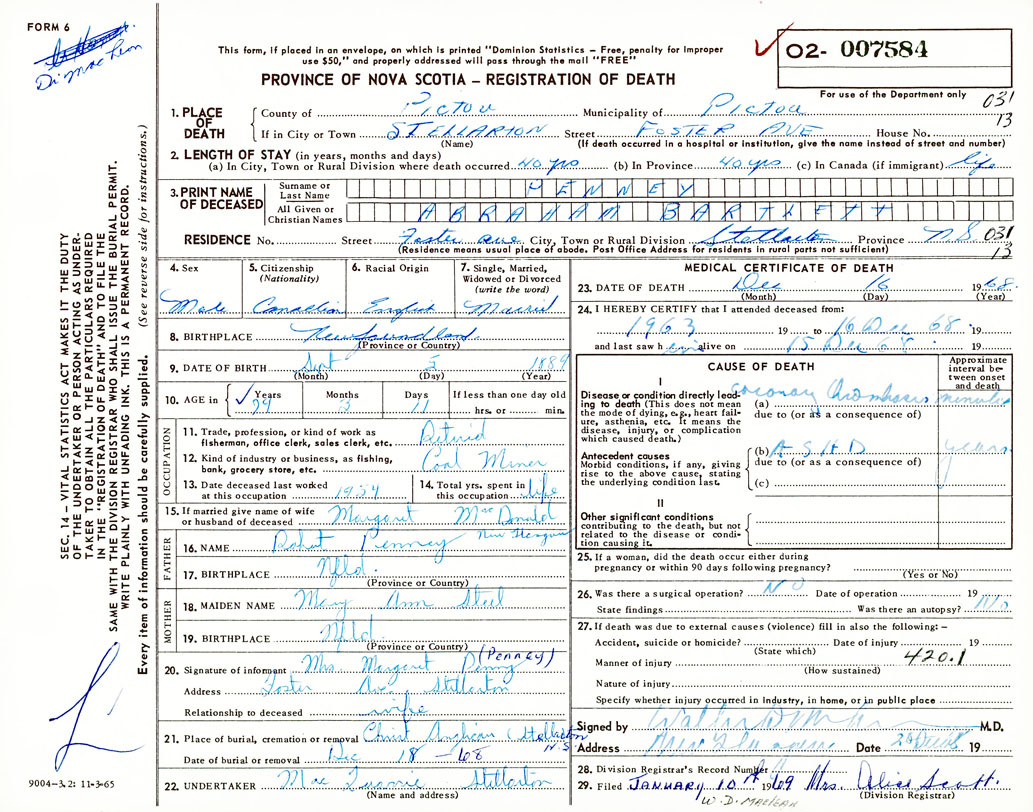 FORM 6
Dr. MacLean
This form, if placed in an envelope, on which is printed "Dominion Statistics – Free, penalty for improper
use $50," and properly addressed will pass through the mail "FREE"
PROVINCE OF NOVA SCOTIA – REGISTRATION OF DEATH
02- 007584
For use of the Department only
031
13
1. PLACE OF DEATH
County of Pictou Municipality of Pictou
If in City or Town STELLARTON Street FOSTER AVE House No.
(Name) (If death occurred in a hospital or institution, give the name instead of street and number)
2. LENGTH OF STAY (in years, months and days)
(a) In City, Town or Rural Division where death occurred 40 yrs (b) In Province 40 yrs (c) In Canada (if immigrant) life
3. PRINT NAME OF DECEASED
Surname or Last Name PENNEY
All Given or Christian Names ABRAHAM BARTLETT
RESIDENCE No. Street Foster Ave City, Town or Rural Division Stellarton Province NS 031
13
(Residence means usual place of abode. Post Office Address for residents in rural parts not sufficient)
4. Sex
Male
5. Citizenship (Nationality)
Canadian
6. Racial Origin
English
7. Single, Married, Widowed or Divorced (write the word)
Married
8. BIRTHPLACE Newfoundland
(Province or Country)
9. DATE OF BIRTH Sept 5 1889
(Month) (Day) (Year)
10. AGE in Years Months Days If less than one day old
79 3 11 hrs. or min.
OCCUPATION
11. Trade, profession, or kind of work as
fisherman, office clerk, sales clerk, etc. Retired
12. Kind of industry or business, as fishing,
bank, grocery store, etc. Coal Miner
13. Date deceased last worked
at this occupation 1954
14. Total yrs. spent in
this occupation life
15. If married give name of wife
or husband of deceased Margaret MacDonald
New Glasgow
FATHER
16. NAME Robert Penney
17. BIRTHPLACE Nfld.
(Province or Country)
MOTHER
18. MAIDEN NAME Mary Ann Steel
19. BIRTHPLACE Nfld.
(Province or Country)
(Penney)
20. Signature of informant Mrs. Margaret Penny
Address Foster Ave. Stellarton
Relationship to deceased wife
21. Place of burial, cremation or removal Christ Anglican (Stellarton
N.S.
Date of burial or removal Dec 18 - 68
22. UNDERTAKER Mac Quarrie Stellarton
(Name and address)
MEDICAL CERTIFICATE OF DEATH
23. DATE OF DEATH Dec 16 1968.
(Month) (Day) (Year)
24. I HEREBY CERTIFY that I attended deceased from:
1963 19 to 16 Dec 68 19
and last saw him alive on 15 Dec 68 19
CAUSE OF DEATH
Approximate interval between onset and death
I
Disease or condition directly leading to death (This does not mean the mode of dying, e.g., heart failure, asthenia, etc. It means the disease, injury, or complication which caused death.)
(a) coronary thrombosis minutes
due to (or as a consequence of)
Antecedent causes
Morbid conditions, if any, giving rise to the above cause, stating the underlying condition last.
(b) A S H D years
due to (or as a consequence of)
(c)
II
Other significant conditions
contributing to the death, but not related to the disease or condition causing it.
25. If a woman, did the death occur either during
pregnancy or within 90 days following pregnancy?
(Yes or No)
26. Was there a surgical operation? No Date of operation 19
State findings Was there an autopsy? No
27. If death was due to external causes (violence) fill in also the following: –
Accident, suicide or homicide? Date of injury 19
(State which)
Manner of injury 420.1
(How sustained)
Nature of injury
Specify whether injury occurred in industry, in home, or in public place
Signed by M.D.
Address New Glasgow Date 19
28. Division Registrar's Record Number
29. Filed JANUARY 10 1969 Mrs. Alice Scott.
(Division Registrar)
W. D. MacLean
SEC. 14 – VITAL STATISTICS ACT MAKES IT THE DUTY
OF THE UNDERTAKER OR PERSON ACTING AS UNDER-
TAKER TO OBTAIN ALL THE PARTICULARS REQUIRED
IN THE "REGISTRATION OF DEATH" AND TO FILE THE
SAME WITH THE DIVISION REGISTRAR WHO SHALL ISSUE THE BURIAL PERMIT.
WRITE PLAINLY WITH UNFADING INK. THIS IS A PERMANENT RECORD.
Every item of information should be carefully supplied. (See reverse side for instructions.)
9004-3.2: 11-3-65